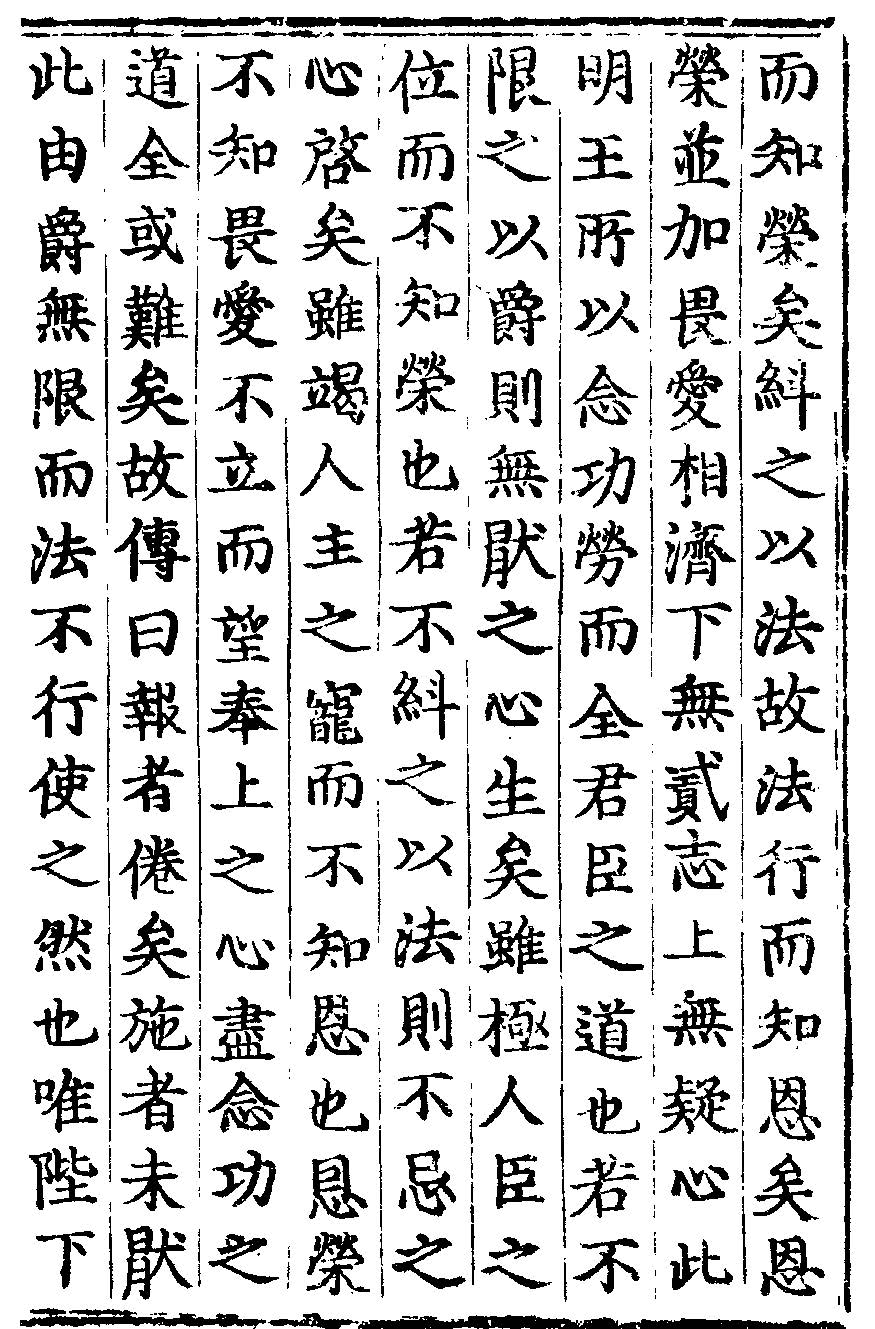 而知榮矣糾之以法故法行而知恩矣恩
榮並加畏愛相濟下無貳志上無疑心此
明王所以念功勞而全君臣之道也若不
限之以爵則無猒之心生矣雖極人臣之
位而不知榮也若不糾之以法則不忌之
心啓矣雖竭人主之寵而不知恩也恩榮
不知畏愛不立而望奉上之心盡念功之
道全或難矣故傳曰報者倦矣施者未猒
此由爵無限而法不行使之然也唯陛下